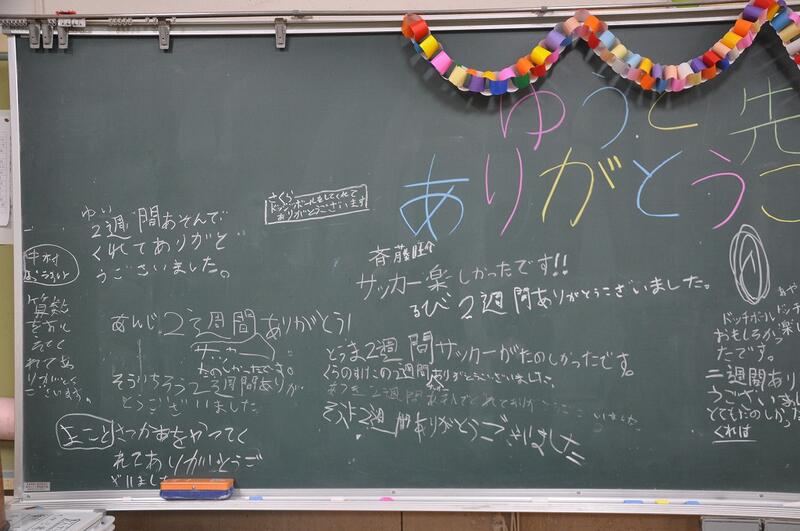 ゆうと先
ありがとうご
ゆい
2週間あそんで
くれてありがと
うございました。
さくら
ドッジボールをしてくれて
ありがとうございます
中村
算数
をおし
えてく
れてあ
りがとう
ございます。
あんじ 2う週間ありがとう!
サッカー
たのしかったです。
そういちろう2週間ありが
とうございました。
まことさっかあをやってく
れてありがとうご
ざいました
斉藤
サッカー楽しかったです!!
るび 2週間ありがとうございました。
とうま2週間サッカーがたのしかったです。
くうのすけこの2週間ありがとうございました。
2週間あそんでくれてありがとうございました
そよ2週間ありがとうございました
あや
ドッチボールドッチ
おもしろかっ楽し
たです。
二週間あり
うございま
とてもたのしかった
くれは